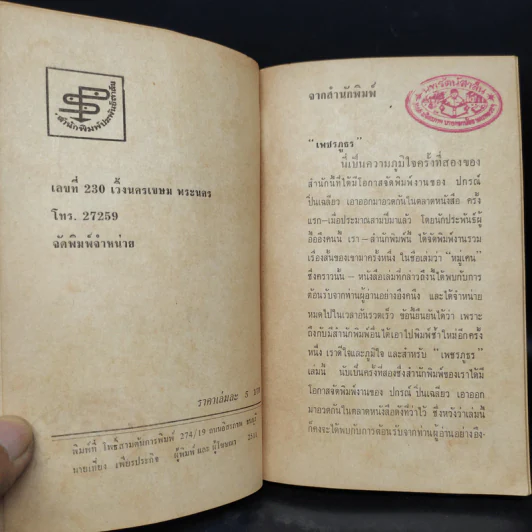 สำนักพิมพ์ประพันธ์สาส์น
เลขที่ 230 เวิ้งนครเขษม พระนคร
โทร. 27259
จัดพิมพ์จำหน่าย
ราคาเล่มละ 5 บาท
พิมพ์ที่ โพธิ์สามต้นการพิมพ์ 274/19 ถนนอิสรภาพ ธนบุรี
นายเกียง เพียรประกิจ ผู้พิมพ์ และ ผู้โฆษณา
จากสำนักพิมพ์
"เพชรภูธร"
นี่เป็นความภูมิใจครั้งที่สองของ
สำนักนี้ที่ได้มีโอกาสจัดพิมพ์งานของ ปกรณ์
ปิ่นเฉลียว เอาออกมาอวดกันในตลาดหนังสือ ครั้ง
แรก–เมื่อประมาณสามปีมาแล้ว โดยนักประพันธ์ผู้
มีชื่อคนนี้ เรา–สำนักพิมพ์นี้ ได้จัดพิมพ์งานรวม
เรื่องสั้นของเขามาครั้งหนึ่ง ในชื่อเล่มว่า "หมู่เคน"
ซึ่งคราวนั้น – หนังสือเล่มที่กล่าวถึงนี้ได้พบกับการ
ต้อนรับจากท่านผู้อ่านอย่างอึงคนึง และได้จำหน่าย
หมดไปในเวลาอันรวดเร็ว ข้อนี้ยืนยันได้ว่า เพราะ
ถึงกับมีสำนักพิมพ์อื่นได้เอาไปพิมพ์ซ้ำใหม่อีกครั้ง
หนึ่ง เราดีใจและภูมิใจ และสำหรับ "เพชรภูธร"
เล่มนี้ นับเป็นครั้งที่สองซึ่งสำนักพิมพ์ของเราได้มี
โอกาสจัดพิมพ์งานของ ปกรณ์ ปิ่นเฉลียว เอาออก
มาอวดกันในตลาดหนังสือดังที่ว่าไว้ ซึ่งหวังว่าเล่มนี้
ก็คงจะได้พบกับการต้อนรับจากท่านผู้อ่านอย่างอึง-